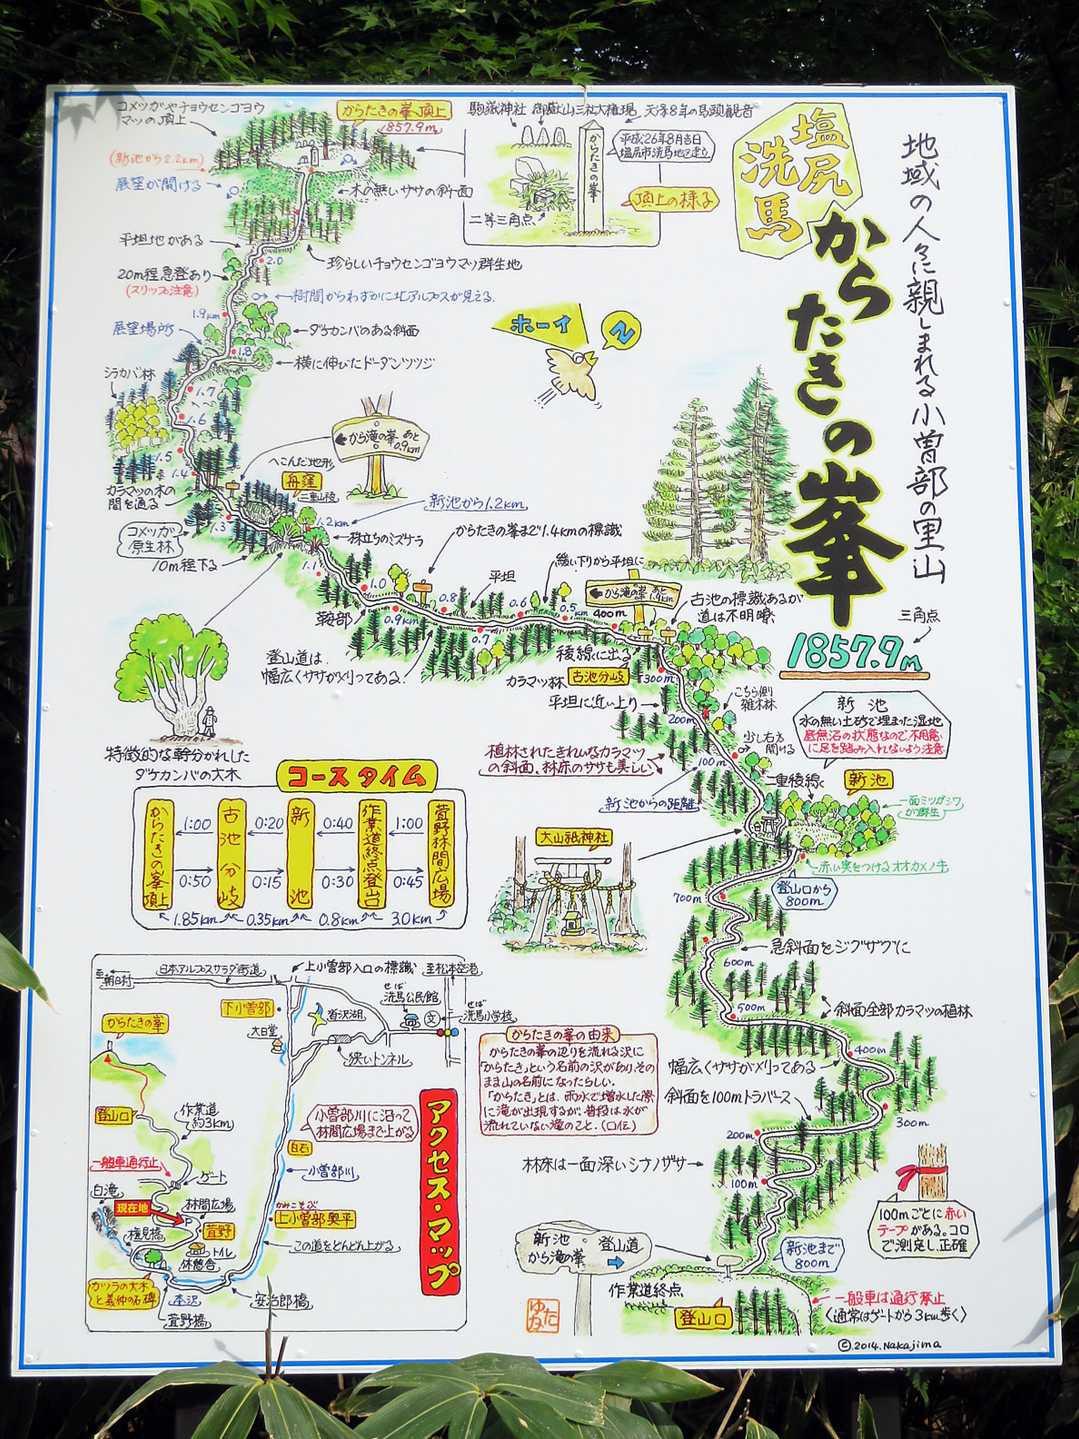 塩尻
洗馬
からたきの峯
地域の人々に親しまれる小曽部の里山
三角点
1857.9m
コメツガやチョウセンゴヨウ
マツの頂上
からたきの峯頂上
1857.9m
(新池から2.2km)
展望が開ける
木の無いササの斜面
駒嶽神社 御嶽山三社大権現 天保8年の馬頭観音
からたきの峯
平成26年8月吉日
塩尻市洗馬地区建立
頂上の様子
二等三角点
平坦地がある
珍らしいチョウセンゴヨウマツ群生地
2.0
20m程急登あり
(スリップ注意)
樹間からわずかに北アルプスが見える.
1.9km
展望場所
ダケカンバのある斜面
1.8
横に伸びたドーダンツツジ
シラカバ林
1.7
1.6
1.5
1.4
カラマツの木の
間を通る
から滝の峯 あと
0.9km
へこんだ地形
舟窪
二重山稜
コメツガ
原生林
1.3
10m程下る
1.2km
新池から1.2km
株立ちのミズナラ
1.1
からたきの峯まで1.4kmの標識
1.0
鞍部
0.9km
0.8
平坦
0.7
0.6
緩い下りから平坦に
0.5km
から滝の峯 あと
1.9km
400m
古池の標識あるが
道は不明瞭
登山道は
幅広くササが刈ってある
稜線に出る
古池分岐
カラマツ林
300m
平坦に近い上り
200m
こちら側
雑木林
少し右方
開ける
100m
新池
水の無い土砂で埋まった湿地
底無沼の状態なので不用意
に足を踏み入れないよう注意
植林されたきれいなカラマツ
の斜面、林床のササも美しい
新池からの距離
二重稜線
新池
一面ミツガシワ
が群生
赤い実をつけるオオカメノキ
登山口から
800m
特徴的な幹分かれした
ダケカンバの大木
コースタイム
からたきの峯頂上
古池分岐
新池
作業道終点登山口
萱野林間広場
1:00
0:20
0:40
1:00
0:50
0:15
0:30
0:45
1.85km
0.35km
0.8km
3.0km
大山祇神社
700m
急斜面をジグザグに
600m
500m
斜面全部カラマツの植林
400m
幅広くササが刈ってある
斜面を100mトラバース
300m
200m
林床は一面深いシナノザサ
100m
100mごとに赤い
テープがある。コロ
で測定し、正確
新池
から滝の峯
登山道
新池まで
800m
作業道終点
登山口
一般車は通行禁止
(通常はゲートから3km歩く)
からたきの峯の由来
からたきの峯の辺りを流れる沢に
「からたき」という名前の沢があり、その
まま山の名前になったらしい.
「からたき」とは、雨水で増水した際
に滝が出現するが、普段は水が
流れていない滝のこと.(口伝)
アクセス・マップ
至朝日村
日本アルプスサラダ街道
上小曽部入口の標識
至松本空港
下小曽部
大日堂
からたきの峯
せば
洗馬公民館
文
せば
洗馬小学校
狭いトンネル
登山口
作業道
約3km
小曽部川に沿って
林間広場まで上がる
一般車通行止
ゲート
白石
小曽部川
白滝
現在地
林間広場
萱野
トイレ
休憩舎
かみこそぶ
上小曽部奥平
この道をどんどん上がる
カツラの大木
と義仲の石碑
本沢
萱野橋
安治郎橋
©2014.Nakajima